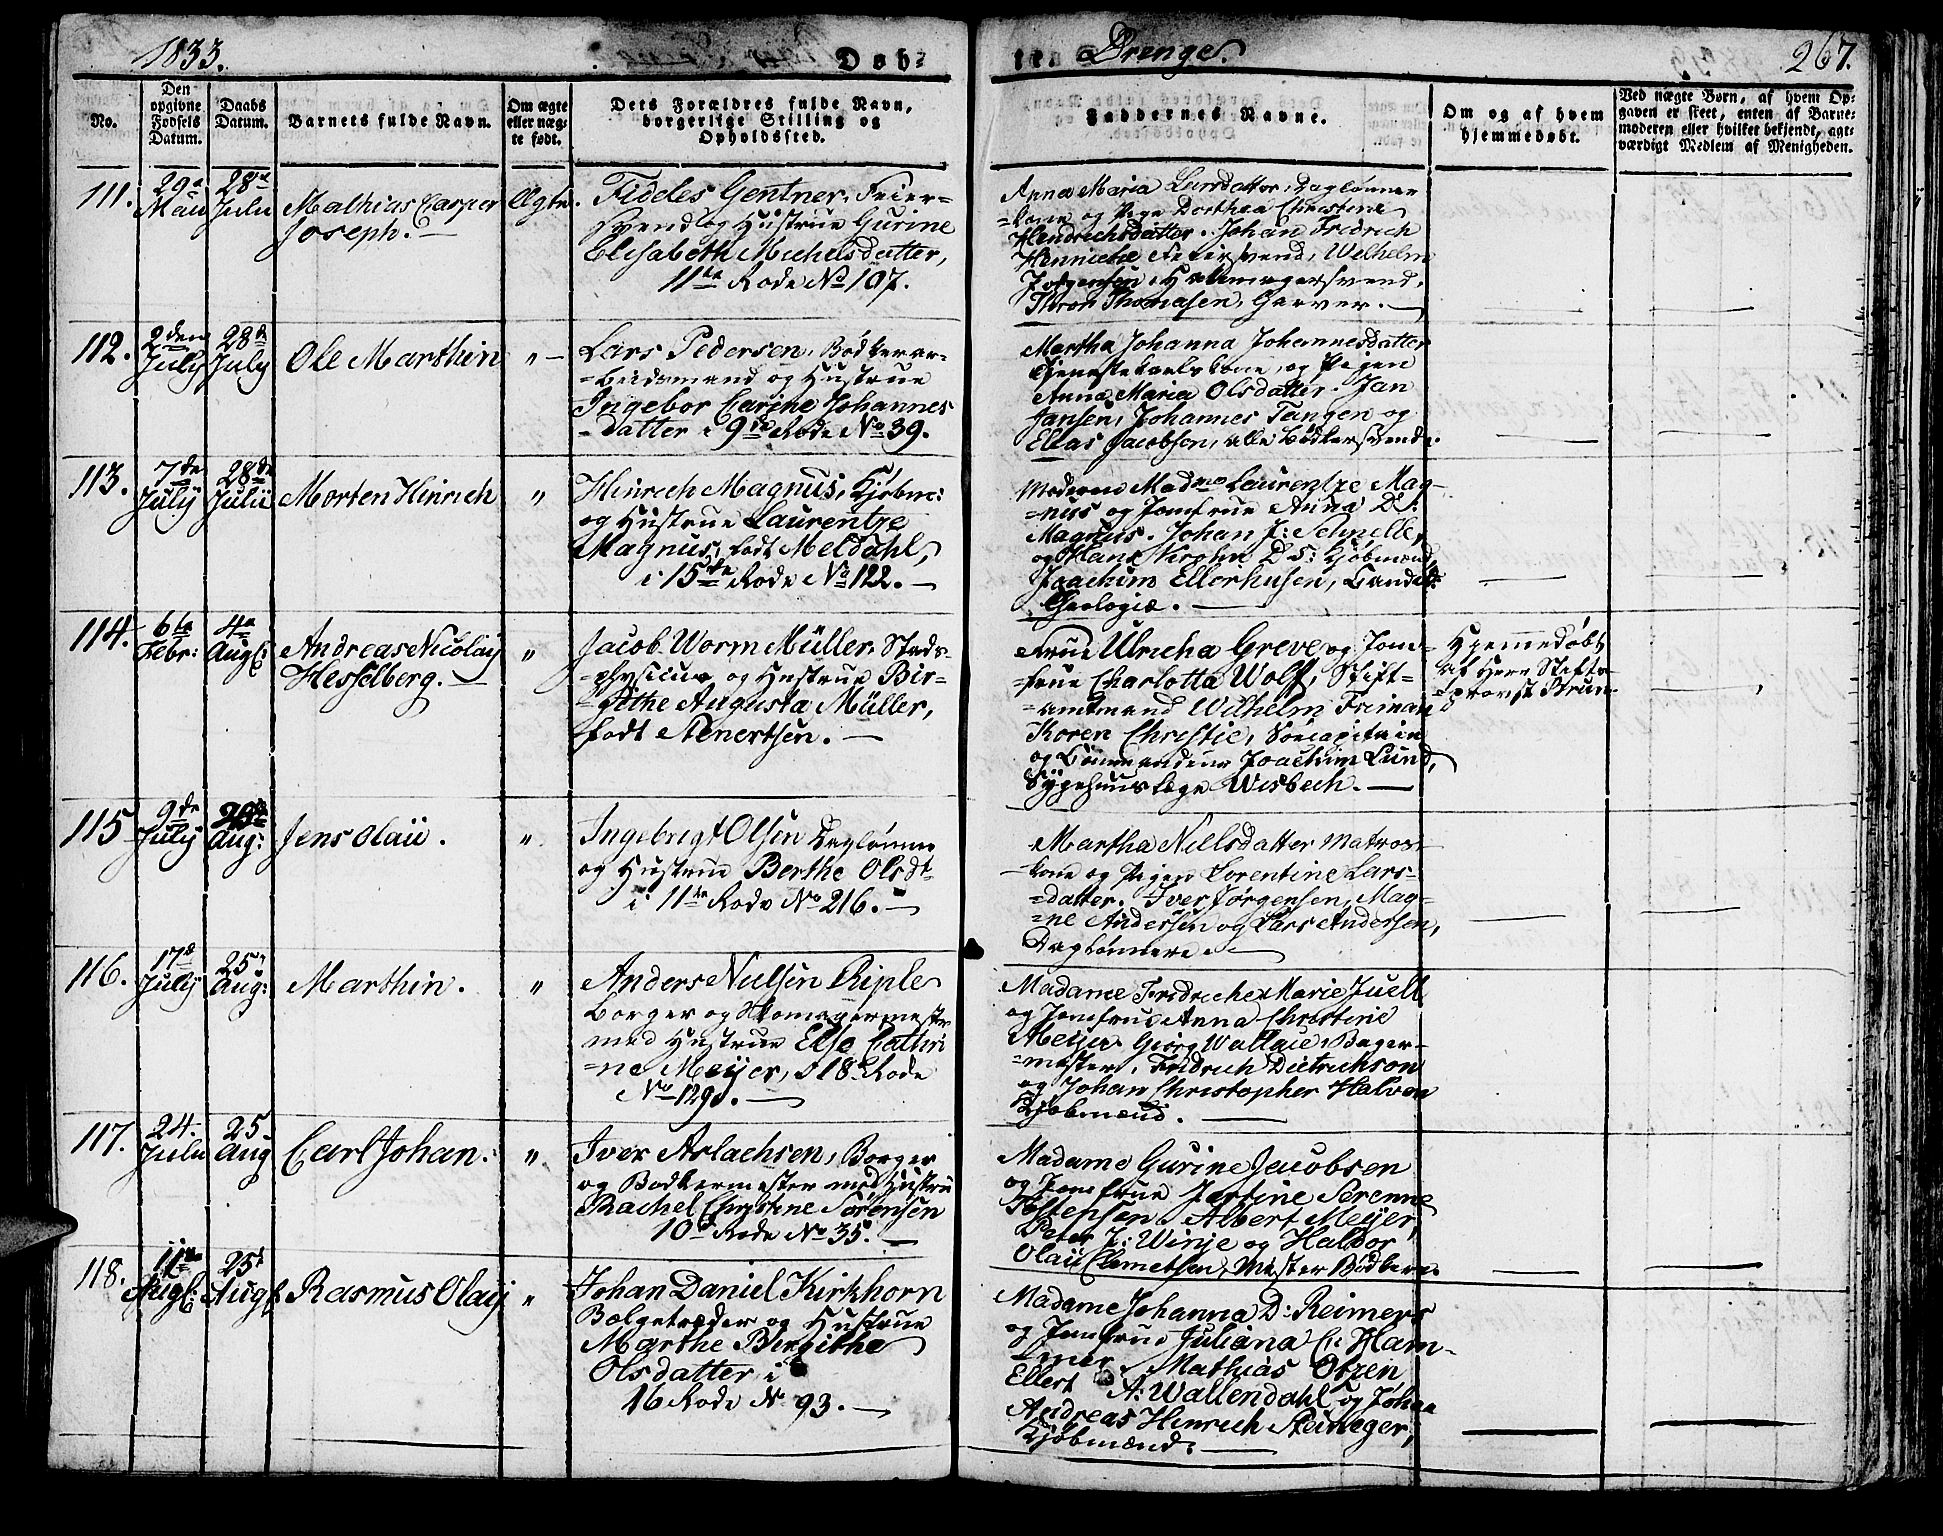 1833.
Døb-
te Drenge.
267.
No.
Den opgivne Fødsels Datum.
Daabs Datum.
Barnets fulde Navn.
Om ægte eller uægte født.
Dets Forældres fulde Navn, borgerlige Stilling og Opholdssted.
Faddernes Navne.
Om og af hvem hjemmedøbt.
Ved uægte Børn, af hvem Opgaven er skeet, enten af Barnemoderen eller hvilket bekjendt, agtværdigt Medlem af Menigheden.
111.
29de Maii
28de Julii
Mathias Casper
Joseph.
Ægte.
Fideles Gentner, Feier-
svend og Hustrue Gurine
Elisabeth Michelsdatter,
11te Rode No 107.
Anna Maria Larsdatter, Daglønner
=kone og Pige Dorthea Christine
Hendrichsdatter. Johan Fridrich
Henniche Feiersvend, Wilhelm
Jørgensen, Hattemagersvend,
Thron Thomasen, Garver.
112.
2den July
28de July
Ole Marthin
"
Lars Pedersen, Bødkerar-
=beidsmand og Hustrue
Ingebor Carine Johannes
=datter i 9de Rode No 39.
Martha Johanna Johannesdatter
Tjenestekarls kone, og Pigen
Anna Maria Olsdatter. Jan
Jansen, Johannes Tangen og
Elias Jacobsen, alle Bødkersvende.
113.
7de July
28de Julii
Morten Hinrich
"
Hinrich Magnus, Kjøbm:
og Hustrue Laurentze
Magnus, født Meldahl,
i 15de Rode No 122.
Moderen Madme Laurentze Mag-
=nus og Jomfrue Anna D:
Magnus. Johan J: Schnelle,
og Hans Krohn D S: Kjøbmænd,
Joachim Ellerhusen, Candid:
Theologiæ.
114.
6te Febr:
4de Aug:
Andreas Nicolay
Hesselberg.
"
Jacob Worm Müller, Stads-
=physicus og Hustrue Bir-
=githe Augusta Müller,
født Stenersen.
Frue Ulricha Greve og Jom-
frue Charlotta Wolff, Stift-
=amtmand Wilhelm Friman
Koren Christie, Søecapitain
og Commandeur Joachim Lund,
Sygehuuslæge Wisbech.
Hjemmedøbt
af Herr Stifts-
=provst Brun.
115
9de July
Aug:
Jens Olaii.
"
Ingebrigt Olsen Daglønner
og Hustrue Berthe Olsdt
i 11te Rode No 216.
Martha Nielsdatter Matros-
kone og Pigen Lorentine Lars-
=datter. Iver Jørgensen, Mag-
=ne Andersen og Lars Andersen,
Daglønnere.
116.
17de July
25de Aug:
Marthin.
"
Anders Nielsen Riple
Borger og Skomagermester
med Hustrue Else Cathri
=ne Meijer, i 18de Rode
No 129.
Madame Fridriche Marie Juell
og Jomfrue Anna Christine
Meijer. Georg Wallace, Bager-
=mester, Fridrich Dietrichson
og Johan Christopher Halvon
Kjøbmænd.
117.
24. Julii
25 Aug
Carl Johan.
"
Iver Aslachsen, Borger
og Bødkermester med Hustru
Rachel Christine Sørensen
10de Rode No 35.
Madame Gurine Jacobsen
og Jomfrue Jertine Serenne
Tostensen. Albert Meijer,
Peter J: Winje og Haldor
Olaii Clemetsen, Mester Bødkere.
118.
11te Augl:
25de Augl:
Rasmus Olaij
"
Johan Daniel Kirkhorn
Bælgetræder og Hustrue
Marthe Birgithe
Olsdatter i
16 Rode No 93.
Madame Johanna D: Reimers
og Jomfrue Juliana C: Ham-
=mer. Mathias Otzen
Ellert A: Wallendahl og Johan
Andreas Hinrich Steineger,
Kjøbmænd.